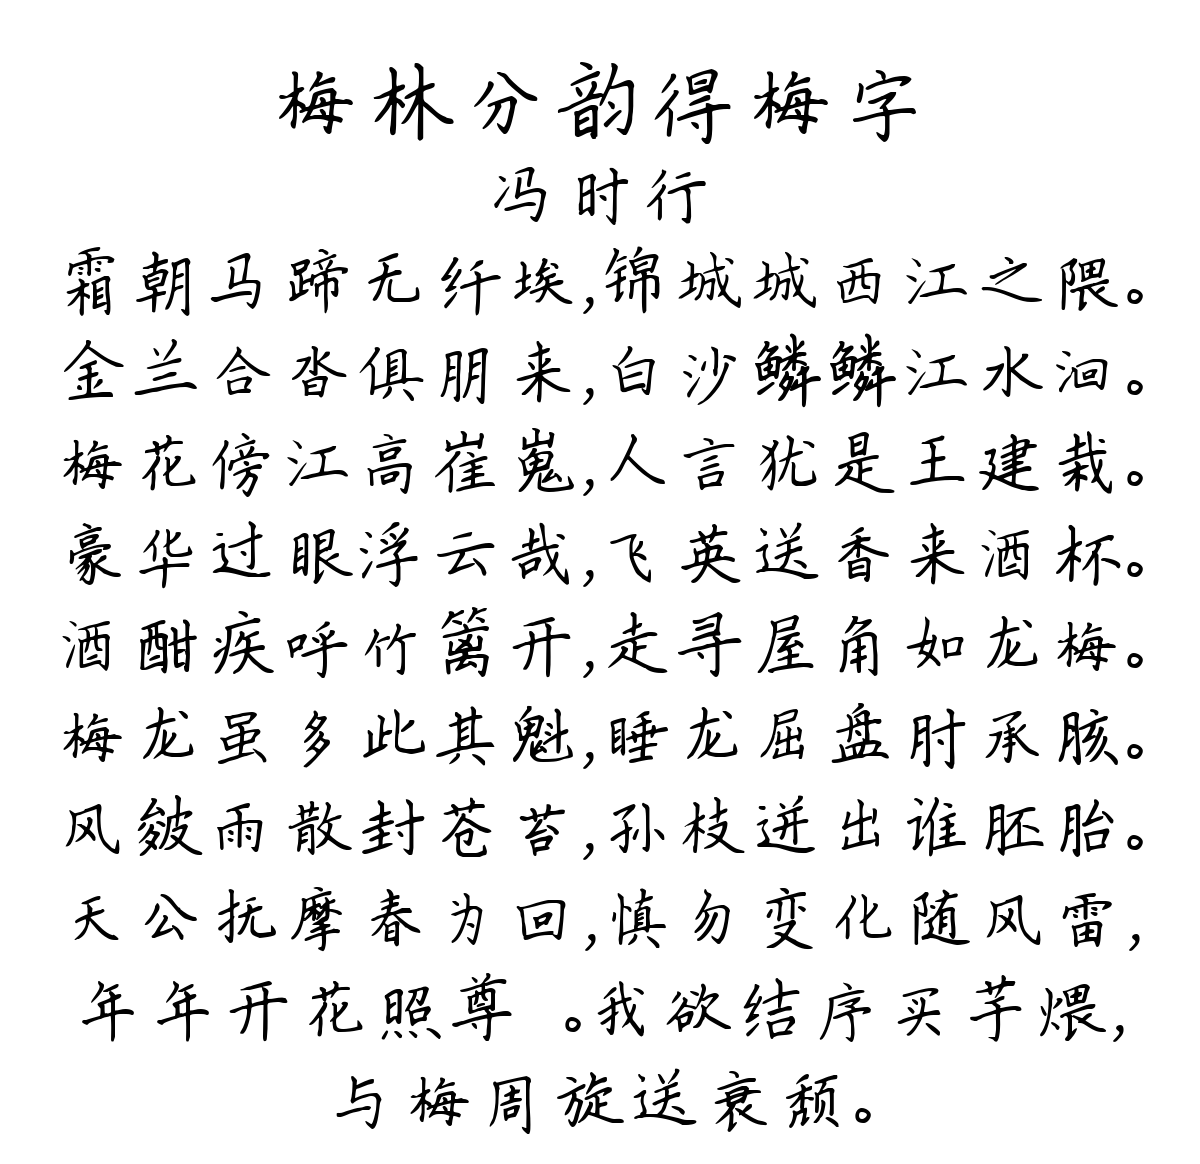 梅林分韵得梅字
冯时行
霜朝马蹄无纤埃,锦城城西江之隈。
金兰合沓俱朋来,白沙鳞鳞江水洄。
梅花傍江高崔嵬,人言犹是王建栽。
豪华过眼浮云哉,飞英送香来酒杯。
酒酣疾呼竹篱开,走寻屋角如龙梅。
梅龙虽多此其魁,睡龙屈盘肘承胲。
风皴雨散封苍苔,孙枝迸出谁胚胎。
天公抚摩春为回,慎勿变化随风雷,
年年开花照尊 。我欲结序买芋煨,
与梅周旋送衰颓。